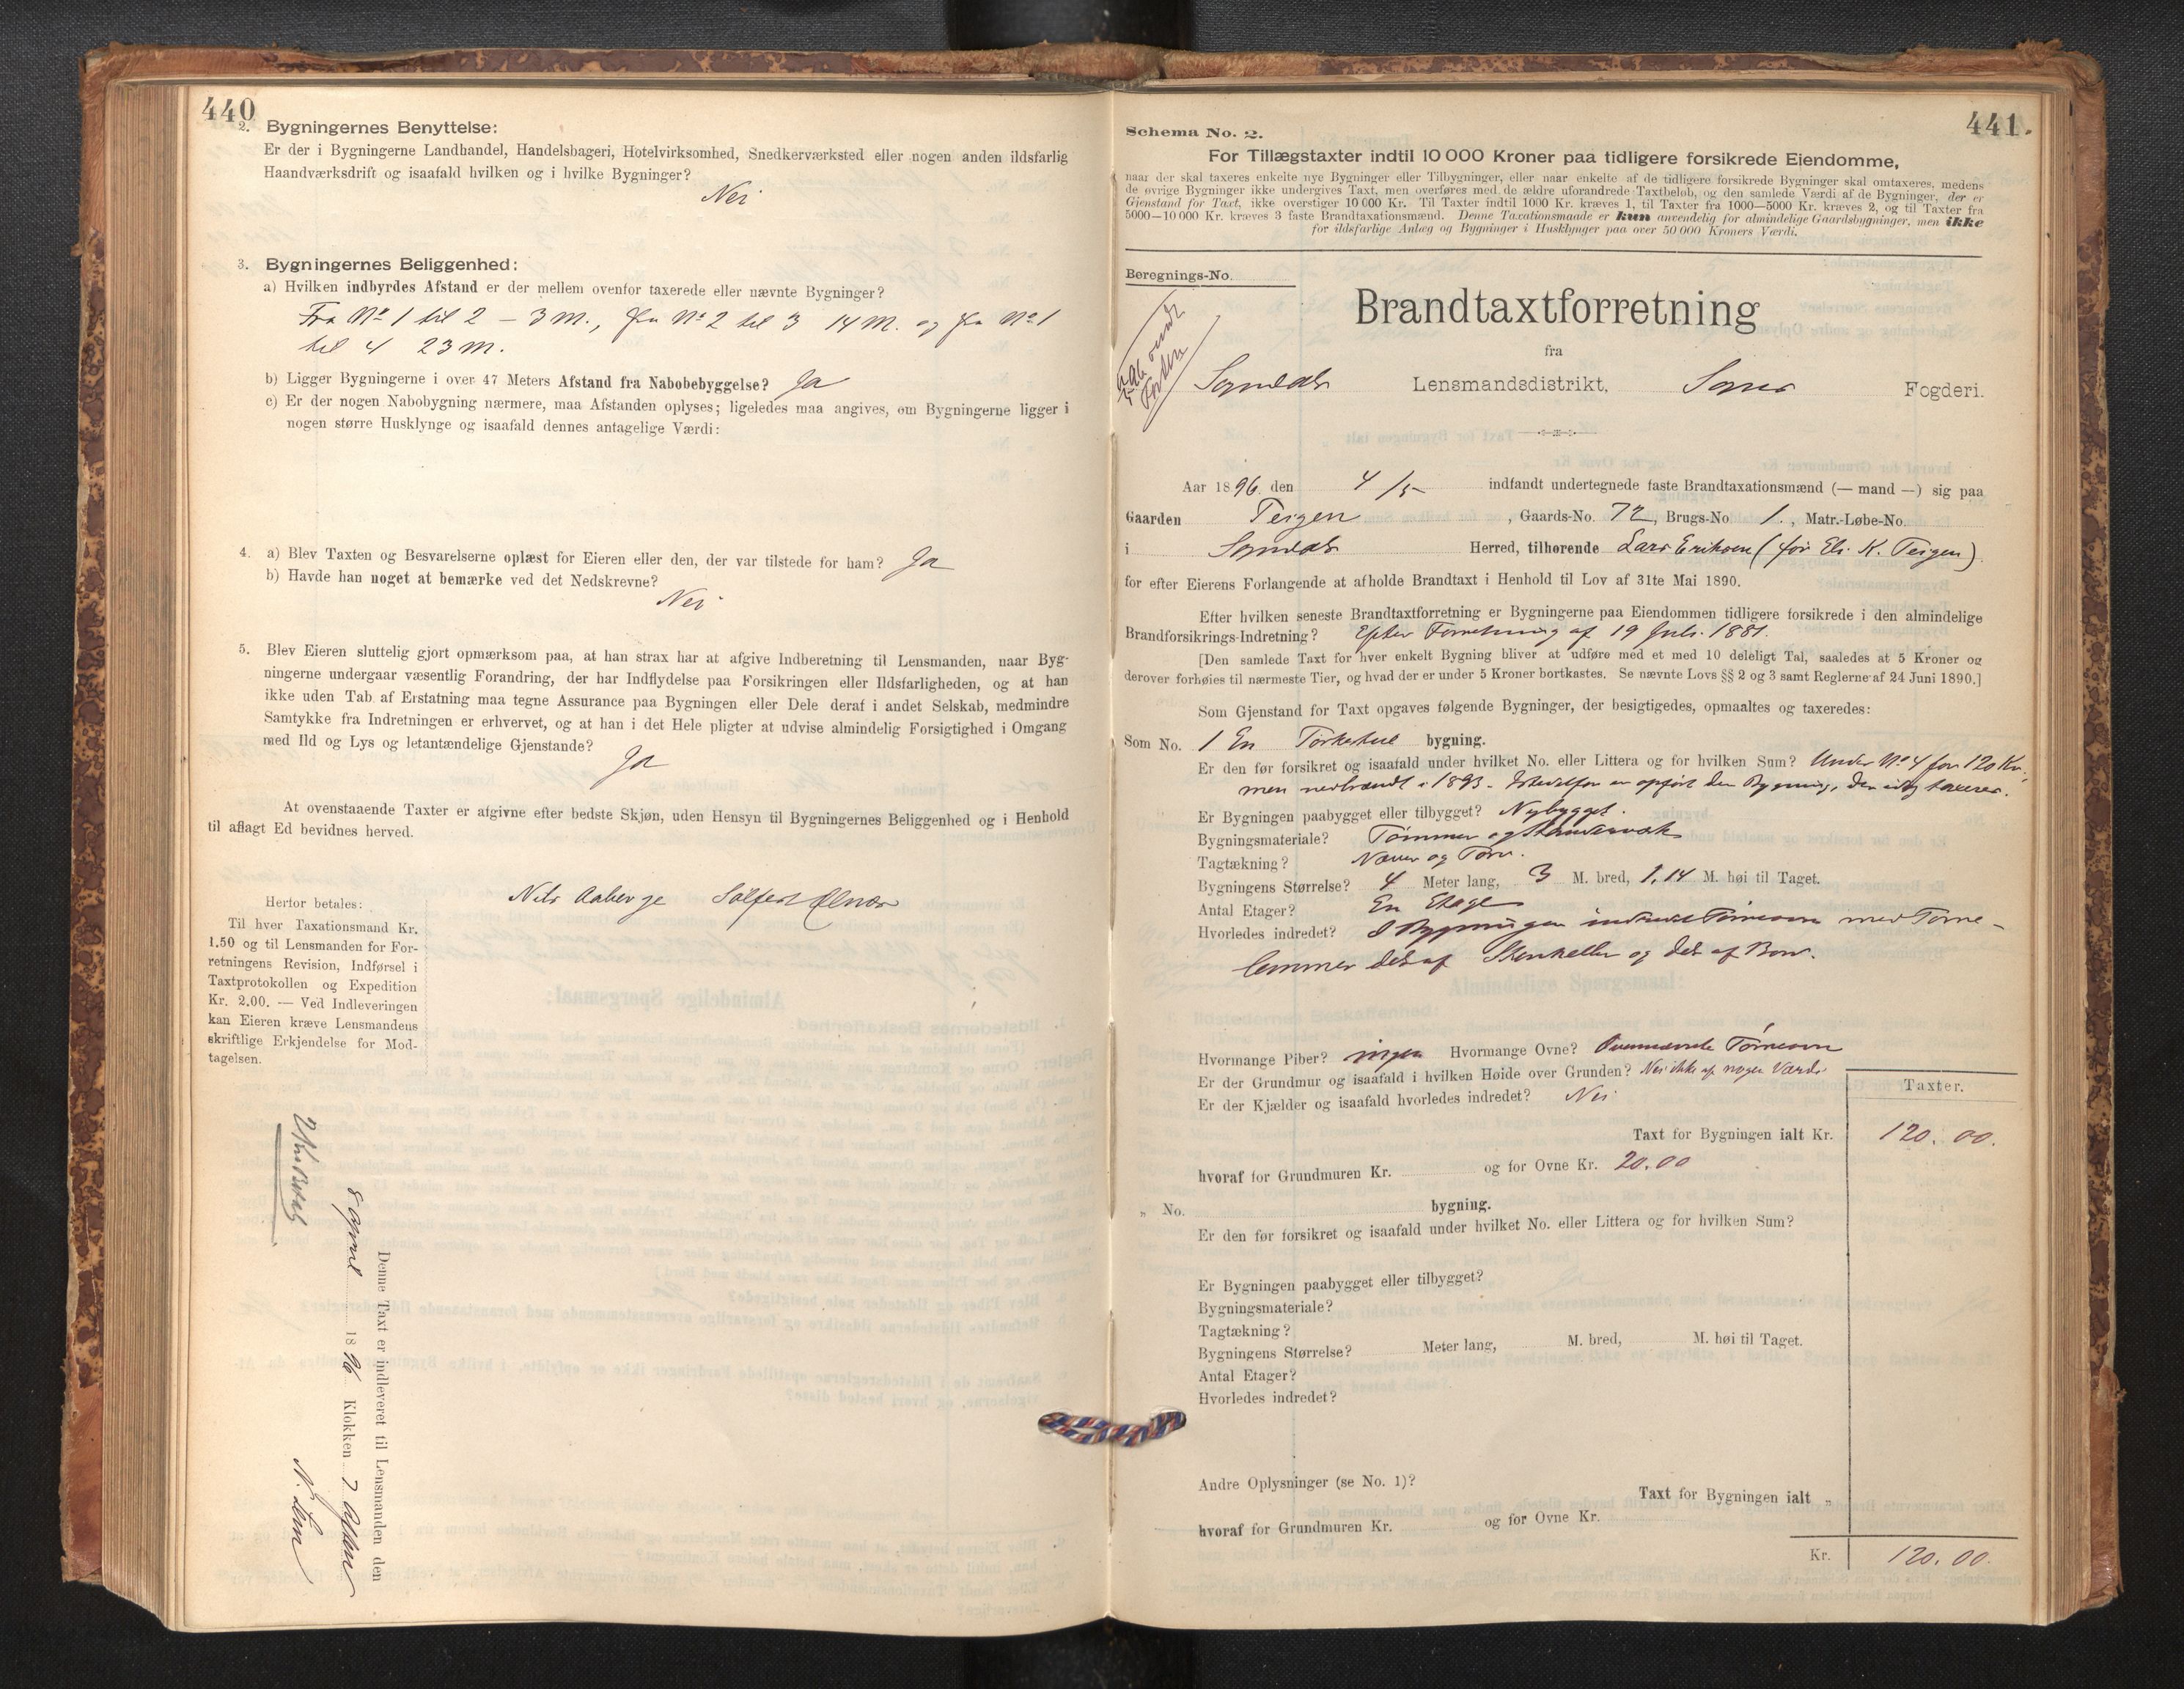 440
2. Bygningernes Benyttelse:
Er der i Bygningerne Landhandel, Handelsbageri, Hotelvirksomhed, Snedkerværksted eller nogen anden ildsfarlig
Haandværksdrift og isaafald hvilken og i hvilke Bygninger?
Nei
3. Bygningernes Beliggenhed:
a) Hvilken indbyrdes Afstand er der mellem ovenfor taxerede eller nævnte Bygninger?
Fra No 1 til 2 – 3 M., fra No 2 til 3 14 M. og fra No 1
til 4 23 M.
b) Ligger Bygningerne i over 47 Meters Afstand fra Nabobebyggelse? Ja
c) Er der nogen Nabobygning nærmere, maa Afstanden oplyses; ligeledes maa angives, om Bygningerne ligger i
nogen større Husklynge og isaafald dennes antagelige Værdi:
4. a) Blev Taxten og Besvarelserne oplæst for Eieren eller den, der var tilstede for ham? Ja
b) Havde han noget at bemærke ved det Nedskrevne?
Nei
5. Blev Eieren sluttelig gjort opmærksom paa, at han strax har at afgive Indberetning til Lensmanden, naar Byg-
ningerne undergaar væsentlig Forandring, der har Indflydelse paa Forsikringen eller Ildsfarligheden, og at han
ikke uden Tab af Erstatning maa tegne Assurance paa Bygningen eller Dele deraf i andet Selskab, medmindre
Samtykke fra Indretningen er erhvervet, og at han i det Hele pligter at udvise almindelig Forsigtighed i Omgang
med Ild og Lys og letantændelige Gjenstande?
Ja
At ovenstaaende Taxter er afgivne efter bedste Skjøn, uden Hensyn til Bygningernes Beliggenhed og i Henhold
til aflagt Ed bevidnes herved.
Nils Aaberge
Herfor betales:
Til hver Taxationsmand Kr.
1.50 og til Lensmanden for For-
retningens Revision, Indførsel i
Taxtprotokollen og Expedition
Kr. 2.00. — Ved Indleveringen
kan Eieren kræve Lensmandens
skriftlige Erkjendelse for Mod-
tagelsen.
Denne Taxt er indleveret til Lensmanden den
8 April 1896 Klokken 7 Aften
441.
Schema No. 2.
For Tillægstaxter indtil 10 000 Kroner paa tidligere forsikrede Eiendomme,
naar der skal taxeres enkelte nye Bygninger eller Tilbygninger, eller naar enkelte af de tidligere forsikrede Bygninger skal omtaxeres, medens
de øvrige Bygninger ikke undergives Taxt, men overføres med de ældre uforandrede Taxtbeløb, og den samlede Værdi af de Bygninger, der er
Gjenstand for Taxt, ikke overstiger 10 000 Kr. Til Taxter indtil 1000 Kr. kræves 1, til Taxter fra 1000—5000 Kr. kræves 2, og til Taxter fra
5000—10 000 Kr. kræves 3 faste Brandtaxationsmænd. Denne Taxationsmaade er kun anvendelig for almindelige Gaardsbygninger, men ikke
for ildsfarlige Anlæg og Bygninger i Husklynger paa over 50 000 Kroners Værdi.
Beregnings-No.
Brandtaxtforretning
fra
Sogndals Lensmandsdistrikt, Sogns Fogderi.
Aar 1896 den 4/5 indfandt undertegnede faste Brandtaxationsmænd (— mand —) sig paa
Gaarden Teigen, Gaards-No. 72, Brugs-No 1., Matr.-Løbe-No.
i Sogndals Herred, tilhørende Lars Eriksen (for Eli K. Teigen)
for efter Eierens Forlangende at afholde Brandtaxt i Henhold til Lov af 31te Mai 1890.
Efter hvilken seneste Brandtaxtforretning er Bygningerne paa Eiendommen tidligere forsikrede i den almindelige
Brandforsikrings-Indretning? Efter Forretning af 19 Juli 1881.
[Den samlede Taxt for hver enkelt Bygning bliver at udføre med et med 10 deleligt Tal, saaledes at 5 Kroner og
derover forhøies til nærmeste Tier, og hvad der er under 5 Kroner bortkastes. Se nævnte Lovs §§ 2 og 3 samt Reglerne af 24 Juni 1890.]
Som Gjenstand for Taxt opgaves følgende Bygninger, der besigtigedes, opmaaltes og taxeredes:
Som No. 1 En Tørkehus bygning.
Er den før forsikret og isaafald under hvilket No. eller Littera og for hvilken Sum? Under No 4 for 120 Kr.,
men nedbrændt i 1893. Istedetfor er opført den Bygning, der idag taxeres.
Er Bygningen paabygget eller tilbygget? Nybygget.
Bygningsmateriale? Tømmer og Standværk
Tagtækning? Næver og Torv.
Bygningens Størrelse? 4 Meter lang, 3 M. bred, 1,14 M. høi til Taget.
Antal Etager? En Etage
Hvorledes indredet? I Bygningen indredet Tørreovn med Tørre-
lemmer del af Stenheller og del af Bord.
Hvormange Piber? ingen Hvormange Ovne? Ovennævnte Tørreovn
Er der Grundmur og isaafald i hvilken Høide over Grunden? Nei ikke af nogen Værdi
Er der Kjælder og isaafald hvorledes indredet? Nei
Taxter.
Taxt for Bygningen ialt Kr. 120.00.
hvoraf for Grundmuren Kr. og for Ovne Kr. 20.00
„ No. bygning.
Er den før forsikret og isaafald under hvilket No. eller Littera og for hvilken Sum?
Er Bygningen paabygget eller tilbygget?
Bygningsmateriale?
Tagtækning?
Bygningens Størrelse? Meter lang, M. bred, M. høi til Taget.
Antal Etager?
Hvorledes indredet?
Andre Oplysninger (se No. 1)?
Taxt for Bygningen ialt „
hvoraf for Grundmuren Kr. og for Ovne Kr.
Kr. 120.00.